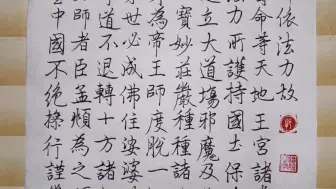 依法力故
命等天地王宮諸
法力所護持國土保
立大道場邪魔及
寶妙莊嚴種種諸
為帝王師度脫一
世必成佛住娑婆
道不退轉十方諸
師者臣孟頫為之
中國不絕操行謹